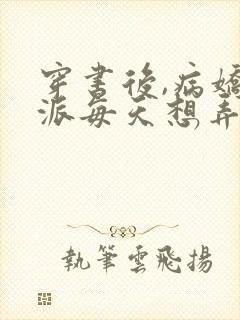 穿書後,病嬌
派每天想弄
執筆雲飛揚